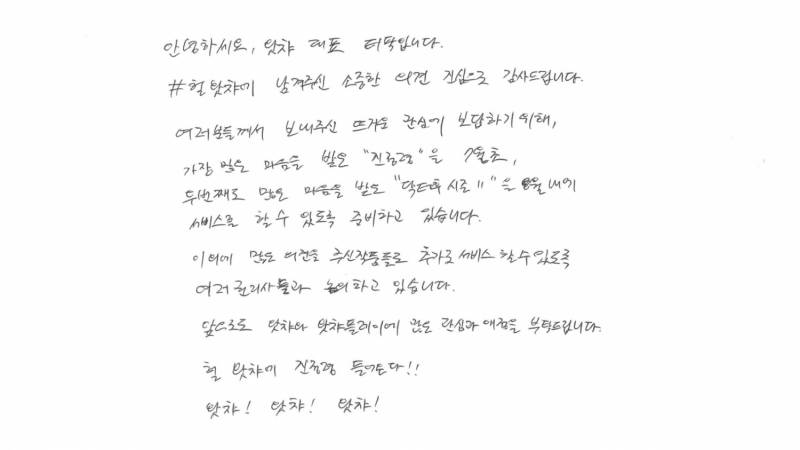 안녕하세요, 왓챠 대표 터팍입니다.
#헐왓챠에 남겨주신 소중한 의견 진심으로 감사드립니다.
여러분들께서 보내주신 뜨거운 관심에 보답하기 위해,
가장 많은 마음을 받은 "진정령"을 7월초,
두번째로 많은 마음을 받은 "닥터후 시즌11"을 8월 내에
서비스를 할 수 있도록 준비하고 있습니다.
이외에 많은 의견을 주신작품들도 추가로 서비스 할 수 있도록
여러 권리사들과 논의하고 있습니다.
앞으로도 왓챠와 왓챠플레이에 많은 관심과 애정을 부탁드립니다.
헐 왓챠에 진정령 들어온다!!
왓챠! 왓챠! 왓챠!